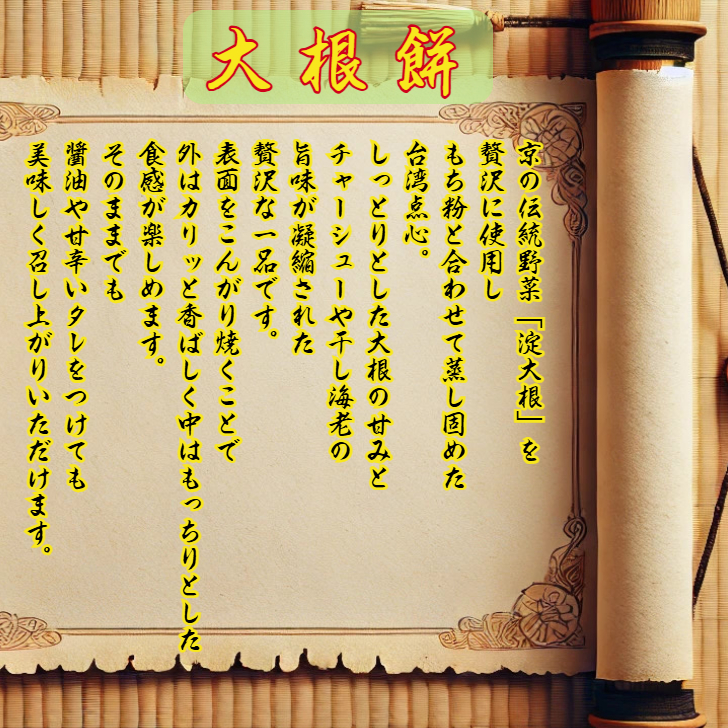 大根餅
京の伝統野菜「淀大根」を
贅沢に使用し
もち粉と合わせて蒸し固めた
台湾点心。
しっとりとした大根の甘みと
チャーシューや干し海老の
旨味が凝縮された
贅沢な一品です。
表面をこんがり焼くことで
外はカリッと香ばしく中はもっちりとした
食感が楽しめます。
そのままでも
醤油や甘辛いタレをつけても
美味しく召し上がりいただけます。